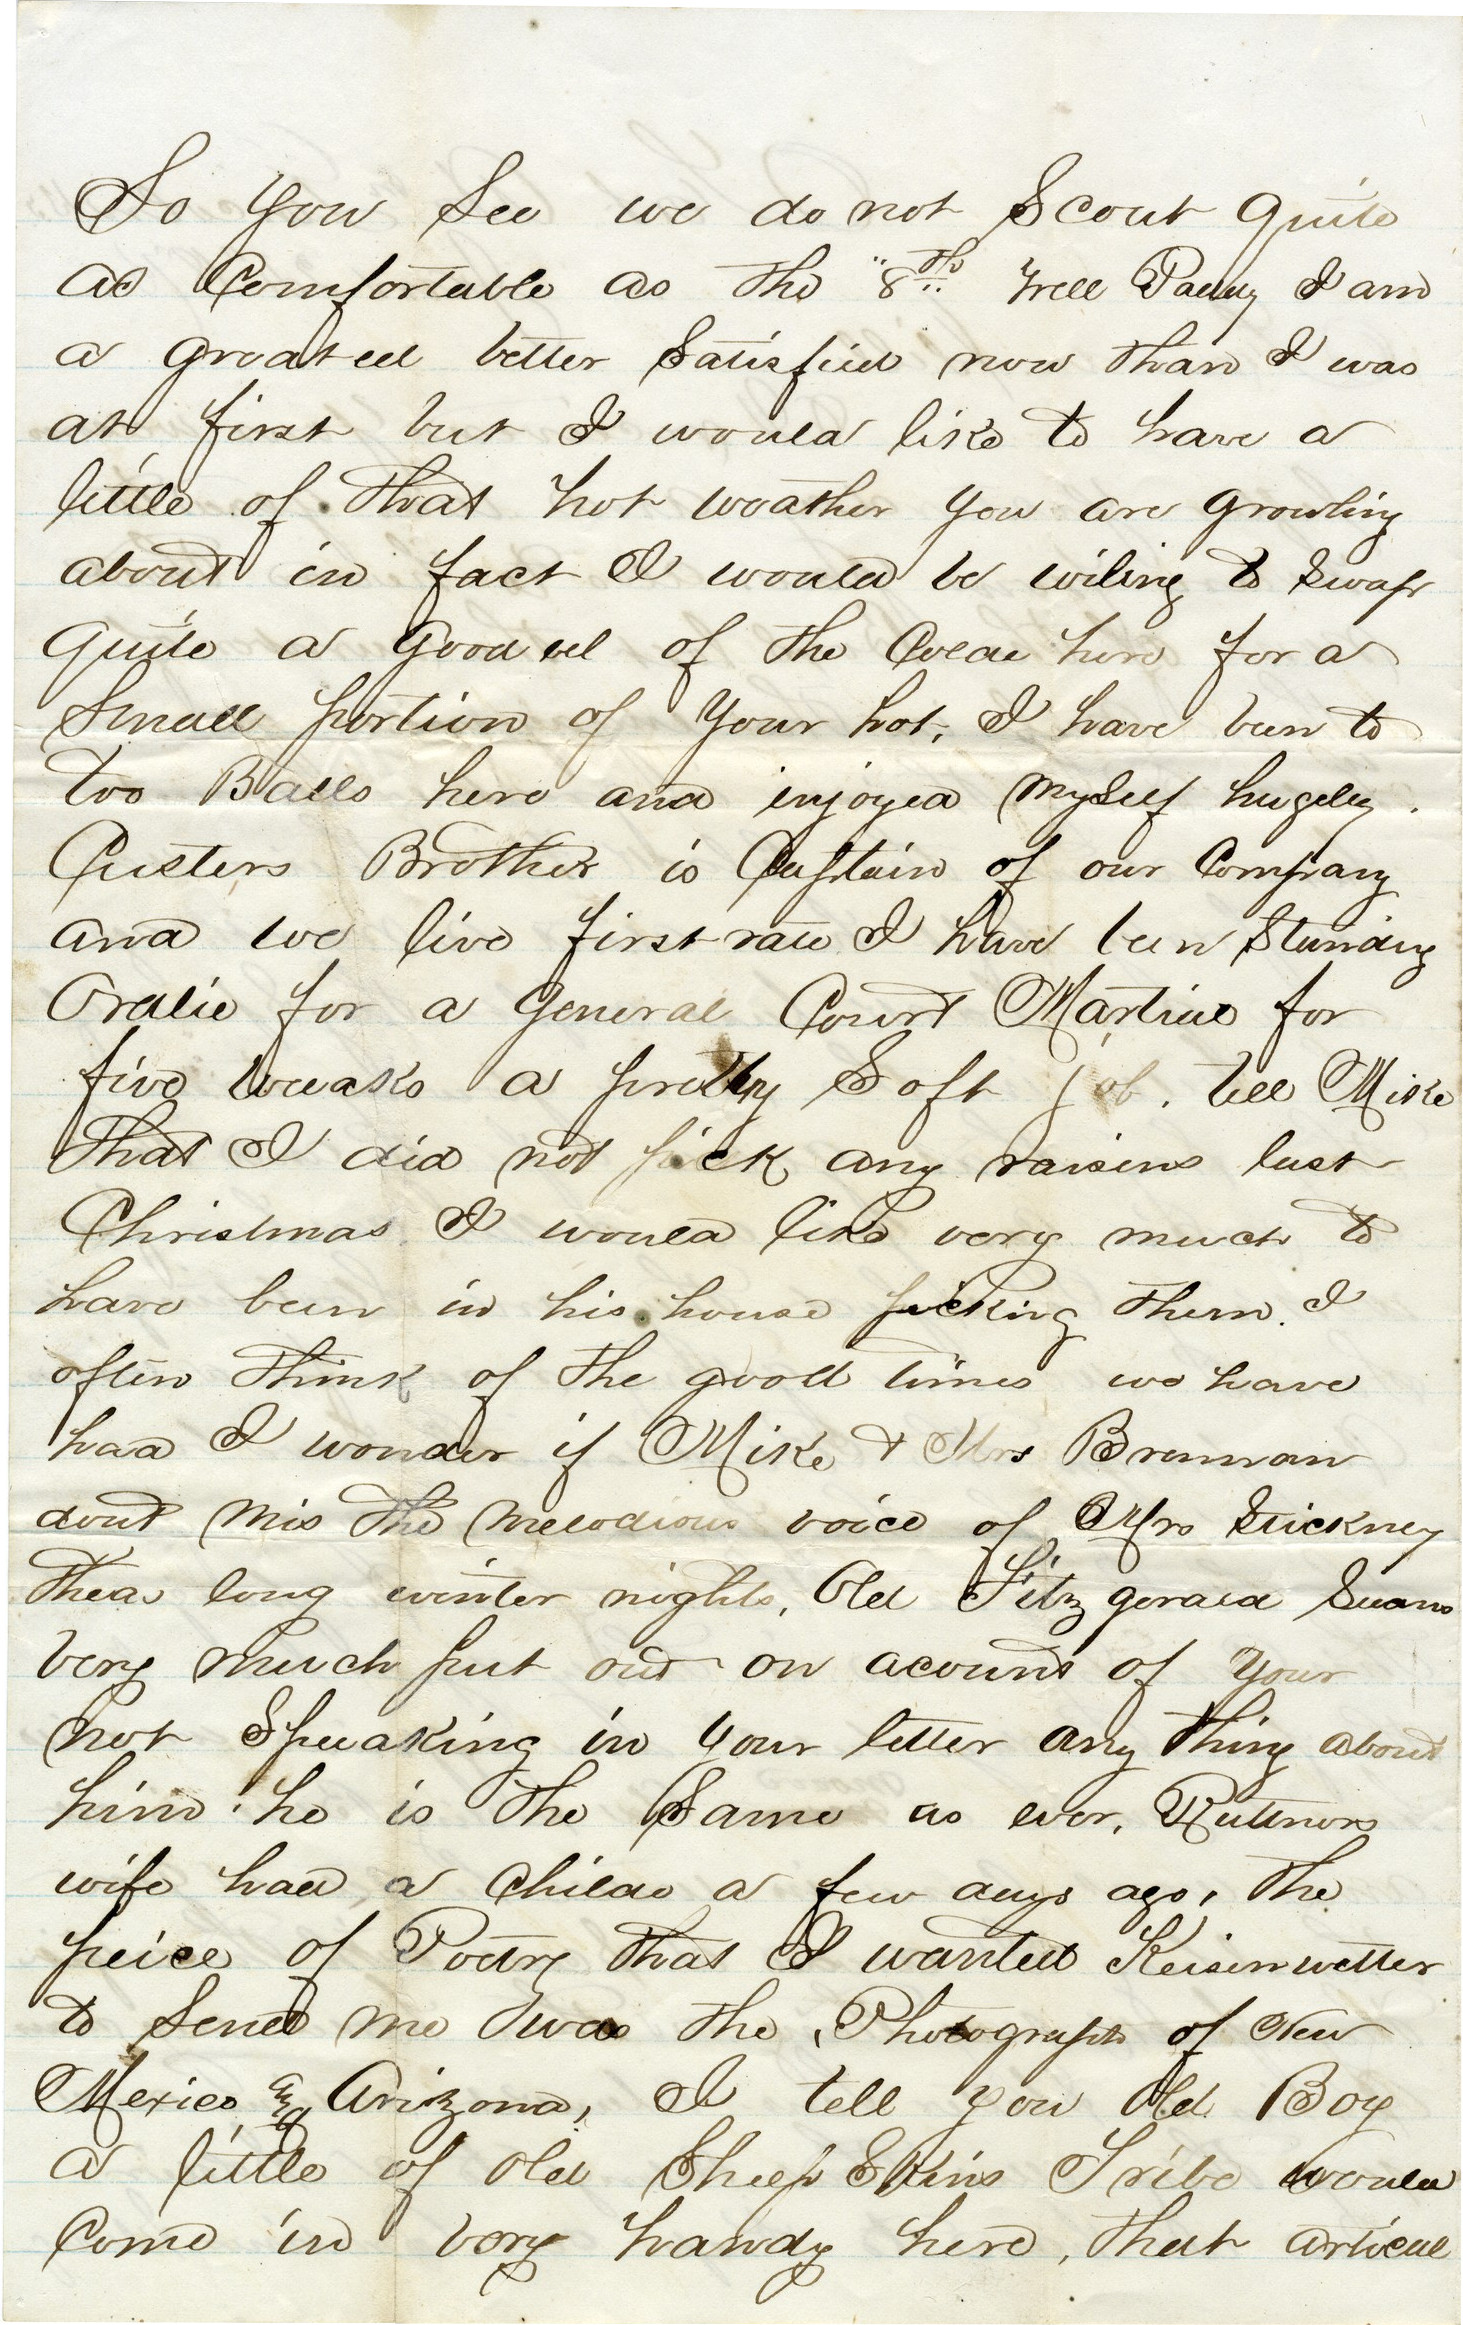 So you See we do not Scout quite
as Comfortable as the "8th" Well Paddy I am
a great eel better Satisfied now than I was
at first but I would like to have a
little of that hot weather you are growling
about in fact I would be wiling to Swap
quite a good eel of the Cold here for a
Small portion of your hot, I have been to
two Balls here and injoyed mySelf hugely.
Custers Brother is Captain of our Company
and we live first rate I have been Standing
Ordlie for a General Court Martial for
five weeaks a pretty Soft job. tell Mike
that I did not pick any raisins last
Christmas I would like very much to
have been in his house picking them. I
often think of the good times we have
had I wonder if Mike & Mrs Brennan
dont mis the melodious voice of Mrs Stickney
thea long winter nights, Old Fitzgerald Seams
very much put out on acount of your
not Speaking in your letter any thing about
him. he is the Same as ever, Ruttners
wife had a Child a few days ago, the
peice of Poetry that I wanted Keisenwetter
to Send me twas the Photograph of New
Mexico & Arizona, I tell you Old Boy
a little of old Sheep Skins Tribe would
Come in very handy here, that article